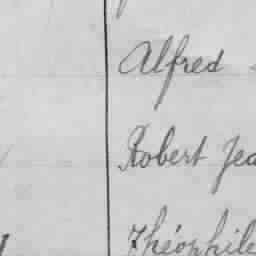 Alfred
Robert Jea
Théophile